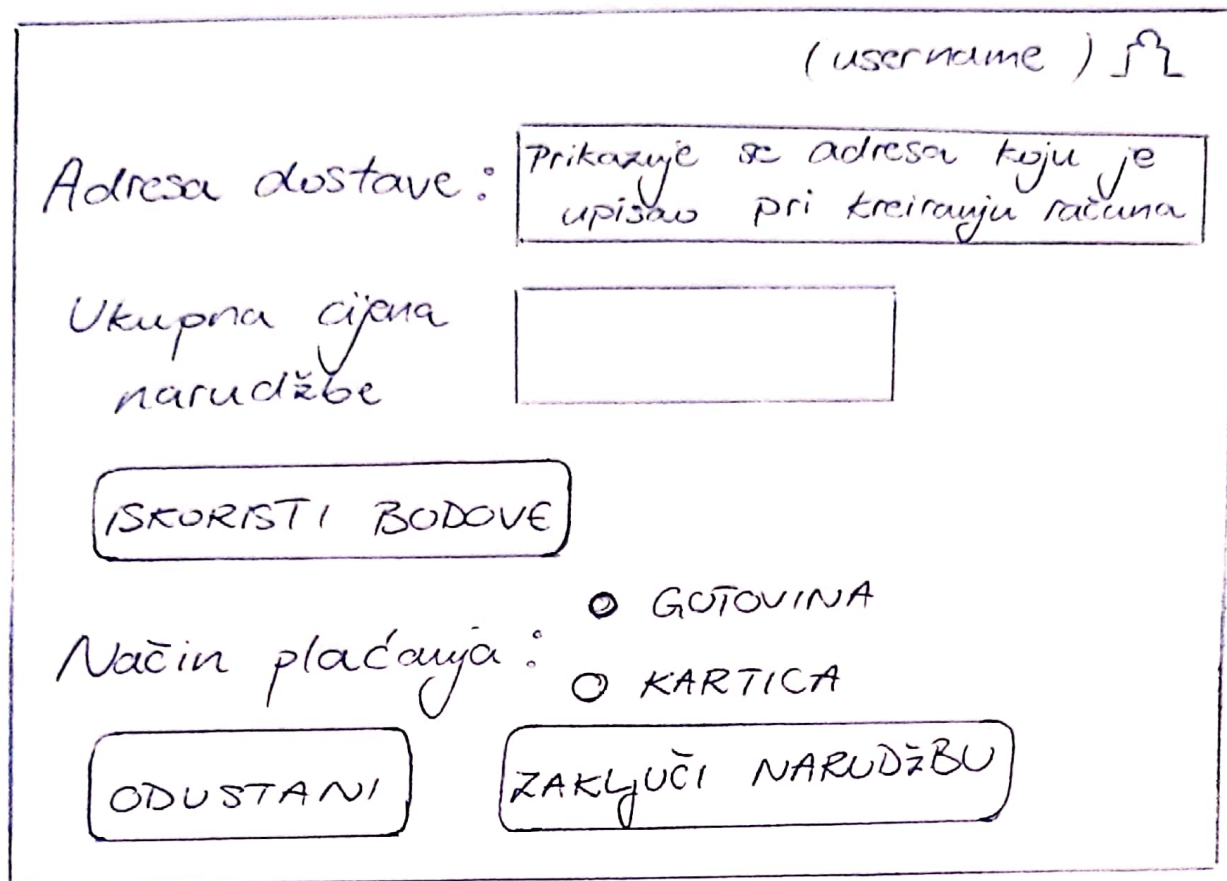 (username)
Adresa dostave:
Prikazuje se adresa koju je
upisao pri kreiranju računa
Ukupna cijena
narudžbe
ISKORISTI BODOVE
Način plaćanja:
GOTOVINA
KARTICA
ODUSTANI
ZAKLJUČI NARUDŽBU